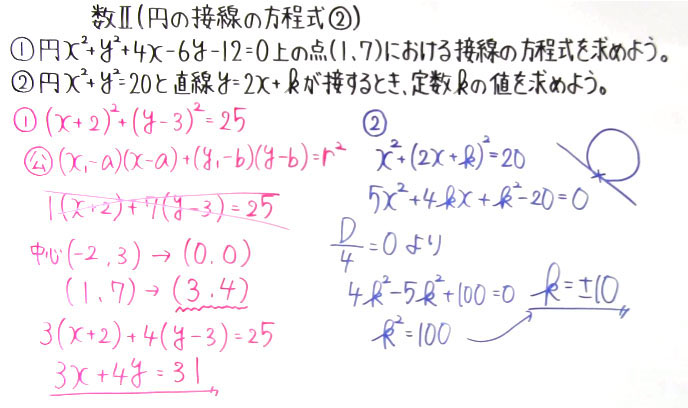 数Ⅱ(円の接線の方程式②)
①円x²+y²+4x-6y-12=0上の点(1,7)における接線の方程式を求めよう。
②円x²+y²=20と直線y=2x+kが接するとき、定数kの値を求めよう。
①(x+2)²+(y-3)²=25
公(x₁-a)(x-a)+(y₁-b)(y-b)=r²
1(x+2)+7(y-3)=25
中心(-2,3)→(0.0)
(1,7)→(3.4)
3(x+2)+4(y-3)=25
3x+4y=31
②
x²+(2x+k)²=20
5x²+4kx+k²-20=0
D/4=0より
4k²-5k²+100=0
k²=100
k=±10